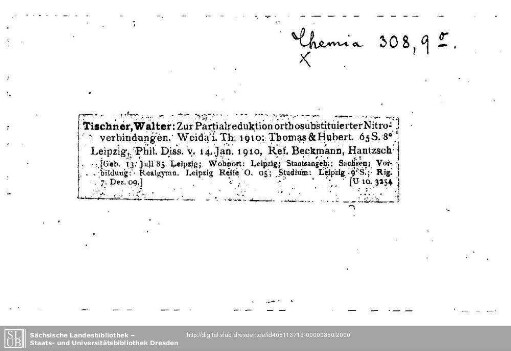 Chemia 308,9 º.
x
Tischner, Walter: Zur Partialreduktion orthosubstituierter Nitro-
verbindungen. Weida i. Th. 1910: Thomas & Hubert. 65 S. 8°
Leipzig, Phil. Diss. v. 14. Jan. 1910, Ref. Beckmann, Hantzsch
[Geb. 13. Juli 85 Leipzig; Wohnort: Leipzig; Staatsangeh.: Sachsen; Vor-
bildung: Realgymn. Leipzig Reife O. 05; Studium: Leipzig 9 S.; Rig.
7. Dez. 09.] [U 10. 3254
SLUB
Sächsische Landesbibliothek –
Staats- und Universitätsbibliothek Dresden